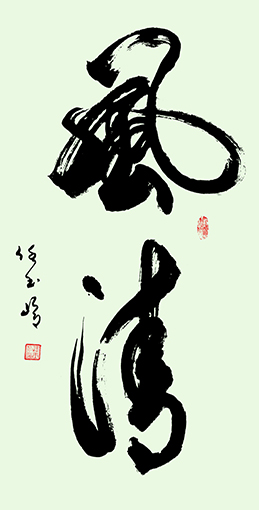 風清
任玉岭